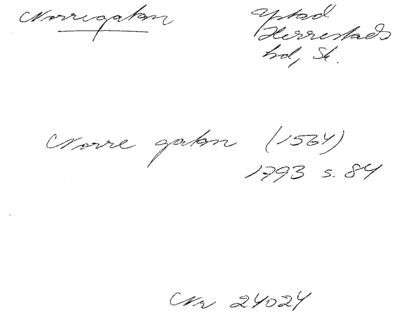 Norregatan
Ystad
Herrestads
hd, Sk.
Norre gatan (1564)
1793 s. 84
Nr 24024